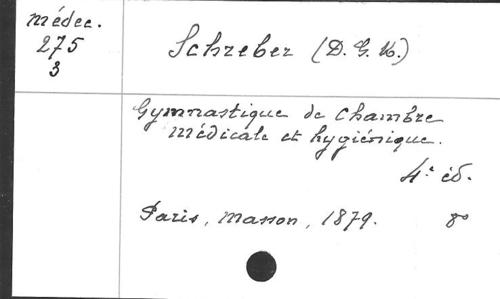 médec.
275
3
Schreber (D. G. M.)
Gymnastique de chambre
médicale et hygiénique.
4e éd.
Paris, Masson, 1879. 8o